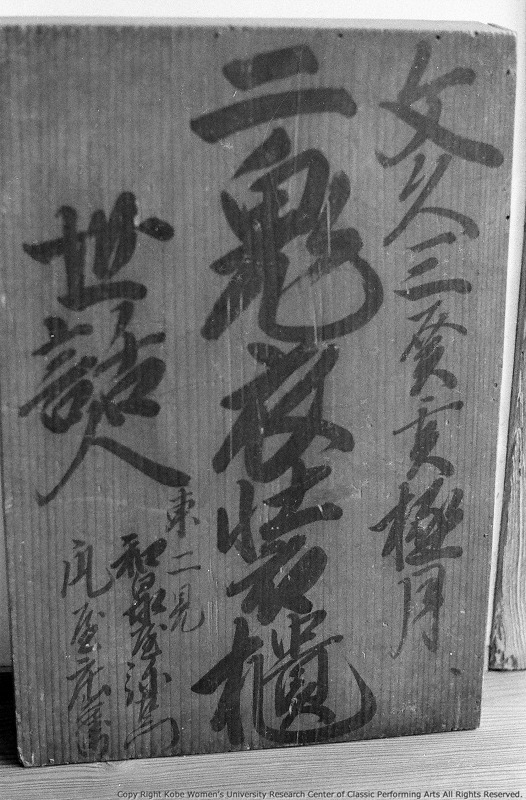 文久三癸亥極月
二鬼衣装櫃
世話人
東二見
和泉屋
屋
Copy Right Kobe Women's University Research Center of Classic Performing Arts All Rights Reserved.